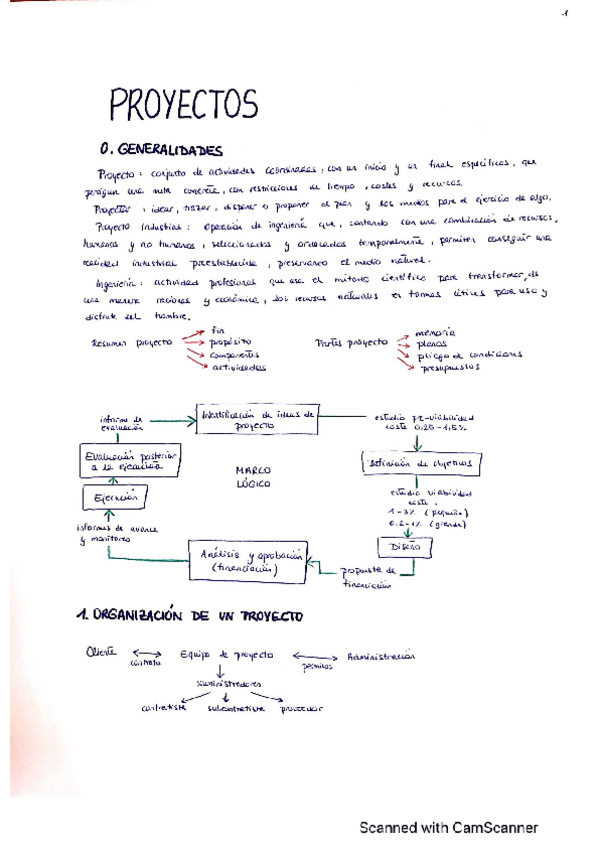 1
PROYECTOS
0. GENERALIDADES
Proyecto: conjunto de actividades coordinadas, con un inicio y un final específicos, que
persiguen una meta concreta, con restricciones de tiempo, costes y recursos.
Proyectar: idear, trazar, disponer o proponer el plan y los medios para el ejercicio de algo.
Proyecto industrial: operación de ingeniería que, contando con una combinación de recursos,
humanos y no humanos, seleccionados y ordenados temporalmente, permiten conseguir una
realidad industrial preestablecida, preservando el medio natural.
Ingeniería: actividad profesional que usa el método científico para transformar, de
una manera racional y económica, los recursos naturales en formas útiles para uso y
disfrute del hombre.
Resumen proyecto
fin
propósito
componentes
actividades
Partes proyecto
memoria
planos
pliego de condiciones
presupuestos
Identificación de ideas de
proyecto
estudio pre-viabilidad
coste 0,25-1,5%
Definición de objetivos
estudio viabilidad
coste:
1-3% (pequeño)
0.2-1% (grande)
Diseño
propuesta de
financiación
Análisis y aprobación
(financiación)
informes de avance
y monitoreo
Ejecución
Evaluación posterior
a la ejecución
informe de
evaluación
MARCO
LÓGICO
1. ORGANIZACIÓN DE UN PROYECTO
Cliente
contrato
Equipo de proyecto
permisos
Administración
suministradores
contratista
subcontratista
proveedor
Scanned with CamScanner